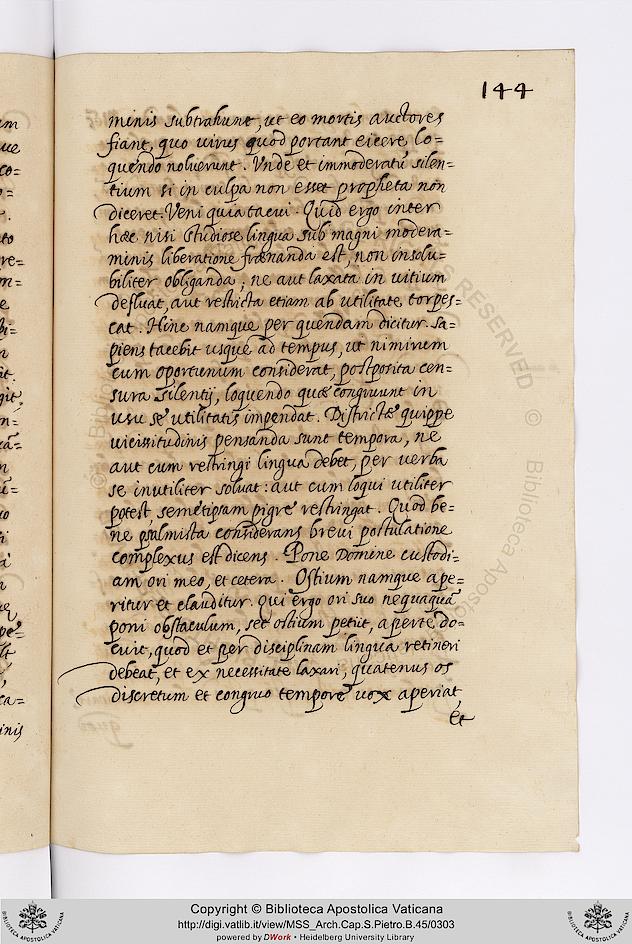 144
minis subtrahunt, ut eo mortis auctores
fiant, quo uirus quod portant eicere lo=
quendo noluerunt. Vnde et immoderatũ silen=
tium si in culpa non esset propheta non
diceret. Veni quia tacui. Quid ergo inter
hæc nisi studiose lingua sub magni modera=
minis liberatione frænanda est, non insolu=
biliter obliganda, ne aut laxata in uitium
defluat, aut restricta etiam ab utilitate torpes=
cat. Hinc namque per quendam dicitur. Sa=
piens tacebit usque ad tempus, ut nimirum
cum oportunum considerat, postposita cen=
sura silentij, loquendo quæ congruunt in
usu se utilitatis impendat. Districtæ quippe
uicissitudinis pensanda sunt tempora, ne
aut cum restringi lingua debet, per uerba
se inutiliter soluat: aut cum loqui utiliter
potest, semetipsam pigre restringat. Quod be=
ne psalmista considerans breui postulatione
complexus est dicens. Pone Domine custodi=
am ori meo, et cetera. Ostium namque ape=
ritur et clauditur. Qui ergo ori suo nequaquã
poni obstaculum, set ostium petit, aperte do=
cuit, quod et per disciplinam lingua retineri
debeat, et ex necessitate laxari, quatenus os
discretum et congruo tempore uox aperiat,
Et
Copyright © Biblioteca Apostolica Vaticana
http://digi.vatlib.it/view/MSS_Arch.Cap.S.Pietro.B.45/0303
powered by DWork • Heidelberg University Library